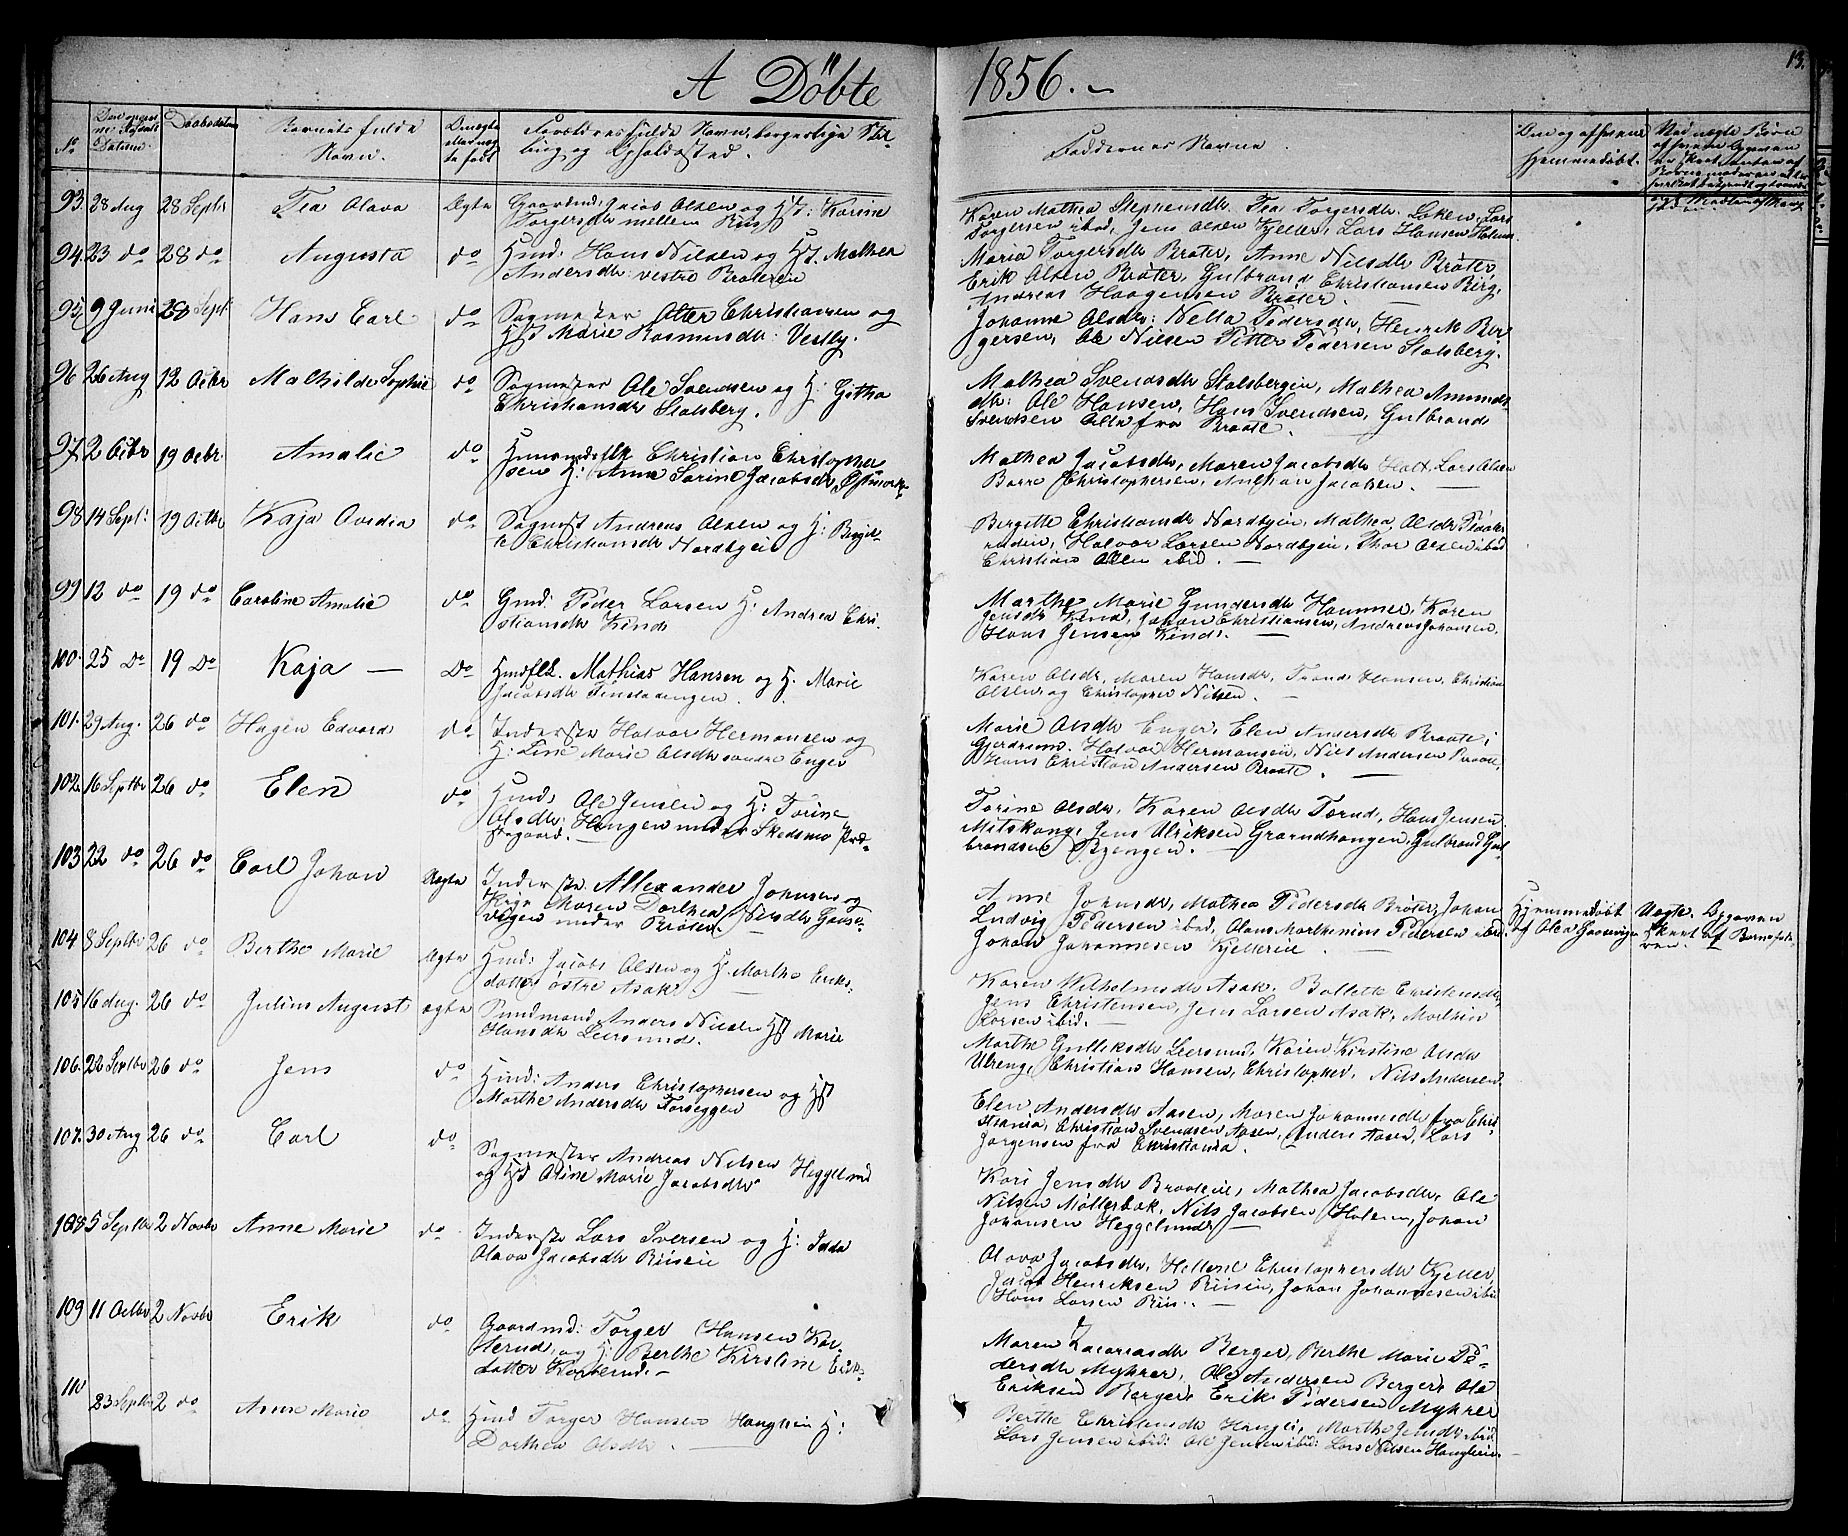 A Döbte 1856. 13.
No Daabsdatum Barnets fulde Navn. Forældres fulde Navn, borgerlige Stilling og Opholdssted. Faddernes Navne.
93. 28 Aug 28 Septbr Tea Olava Ægte Gaardmd: Jacob Olsen og Hst: Karine
Torgersdr mellem Riis
Karen Mathea Stephensdr. Tea Torgersdr. Løken, Lars
Torgersen ibid, Jens Olsen Kjeller, Lars Hansen Holum
94. 23 do 28 do Augusta do Hmd: Hans Nilsen og Hst. Mathea
Andersdr: vestre Braatein
Maria Torgersdr Brøter, Anne Nilsdr Brøter,
Erik Olsen Brøter, Gulbrand Christiansen Berg,
Andreas Haagensen Brøter.
95. 9 Juni 28 Sept Hans Carl do Sagmester Christiansen og
Hst Marie Rasmusdr: Vestby.
Johanne Olsdr: Nella Pedersdr, Henrik Ber
gersen, Ole Nilsen Petter Pedersen Stalsberg.
96 26 Aug 12 Octbr Mathilde Sophie do Sagmester Ole Svendsen og H: Githa
Christiansdr Stalsberg.
Mathea Svendsdr Stalsbergin, Mathea Amunds
dr: Ole Hansen, Hans Svendsen, Gulbrand
Svendsen Alle fra Braate.
97. 2 Octbr 19 Octbr. Amalie do Huusmdsflk Christian Christopher
sen H: Anne Sarine Jacobsdr,
Mathea Jacobsdr, Maren Jacobsdr Holt, Lars Olsen
Borre Christophersen, Jacobsen.
98 14 Sept: 19 Octbr Kaja Ovidia do Sagmest Andreas Olsen og H: Birgit-
te Christiansdr Nordbyein
Bergitte Christiansdr Nordbyein, Mathea Olsdr
Halvor Larsen Nordbyein, Thor Olsen ibid
Christian Olsen ibid.
99 12 do 19 do Caroline Amalie do Gmd: Peder Larsen H: Andrea Chri-
stiansdr Kind
Marthe Marie Gundersdr Hammer, Karen
Jensdr Kind, Johan Christiansen, Andreas Johansen,
Hans Jensen Kind.
100. 25 Do 19 Do Kaja Do Hmdflk. Mathias Hansen og H. Marie
Jacobsdr
Karen Olsdr, Maren Hansdr, Trond Hansen, Christian
Olsen og Christopher Nilsen.
101. 29 Aug. 26 do Hagen Edvard do Inderste Halvor Hermansen og
H: Line Marie Olsdr søndre Enger
Marie Olsdr Enger, Elen Andersdr Braate i
Gjerdrum. Halvor Hermansen, Nils Andersen Braate,
Hans Christian Andersen Braate.
102. 16 Septbr 26 do Elen do Hmd: Ole Jensen og H: Torine
Olsdr: Haugen under Skedsmo Præ-
stegaard.
Torine Olsdr, Karen Olsdr Torud, Hans Jensen
Mitskong, Jens Ulriksen Grarudhaugen, Gulbrand Gul-
brandsen Bjengen.
103 22 do 26 do Carl Johan Uægte Inderste Allexander Johnsen og
Pige Maren Dorthea Nilsdr Gaase-
vigen under Brøter.
Anne Johnsdr, Mathea Pedersdr Brøter, Johan
Ludvig Pedersen ibid, Olaus Marthenius Pedersen ibid.
Johan Johannesen Kjellerin
Hjemmedöbt
af Olea Gaasevigen
Uægte. Opgaven
skeet af Barnefad-
ren.
104 8 Septbr 26 do Berthe Marie Ægte Hmd: Jacob Olsen og H. Marthe Eriks-
datter østre Asak
Karen Wilhelmsdr Asak. Bollette Christensdr,
Jens Christensen, Jens Larsen Asak, Marthin
Larsen ibid.
105 16 Aug. 26 do Julius August ægte Pundmand Anders Nilsen Hst Marie
Hansdr Leersund.
Marthe Gulliksdr Leersund, Karen Kirstine Olsdr
Ulreng, Christian Hansen, Christopher, Nils Andersen.
106. 22 Septbr 26 do Jens do Hmd: Anders Christophersen og Hst
Marthe Andersdr Torseggen
Elen Andersdr Aasen, Maren Johannesdr fra Chri-
stiania, Christian Svendsen Aasen, Anders Aasen, Lars
Jørgensen fra Christiania.
107. 30 Aug 26 do Carl do Sagmester Andreas Nilsen Heggelund
og Hst Oline Marie Jacobsdr
Kari Jensdr Braatein, Mathea Jacobsdr, Ole
Nilsen Møllerbak, Nils Jacobsen Holum, Johan
Johansen Heggelund
108 5 Septbr 2 Novbr Anne Marie do Inderste Lars Iversen og H: Idda
Olava Jacobsdr Riisein
Olava Jacobsdr, Hellene Christophersdr Kjeller,
Jacob Henriksen Riisin, Johan Johannesen ibid
Hans Larsen Riis.
109 11 Octbr 2 Novbr Erik do Gaardmd: Torger Hansen Kor-
Herud, og H: Berthe Kirstine Erik-
datter Korterud.
Maren Zacariasdr Berger, Berthe Marie Pe-
dersdr Myhrer, Ole Andersen Berger, Ole
Eriksen Berger, Erik Pedersen Myhrer
110 23 Septbr 2 do Anne Marie do Hmd Torger Hansen Haugliin H:
Dorthea Olsdr.
Berthe Christensdr Haugli, Marthe Jensdr ibid
Lars Jensen ibid: Ole Jensen ibid: Lars Nilsen Hauglein.